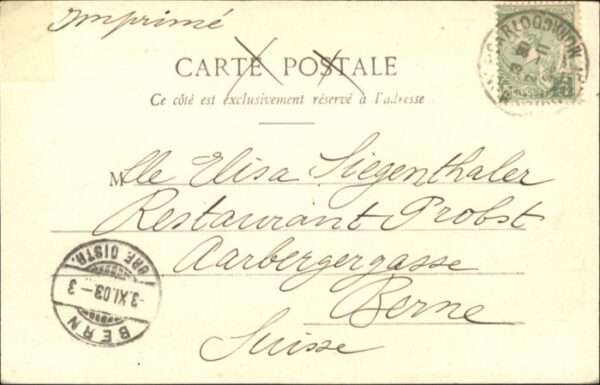 Imprimé
CARTE POSTALE
Ce côté est exclusivement réservé à l'adresse
Mlle Elisa Siegenthaler
Restaurant Probst
Aarbergergasse
Berne
Suisse
BERN
-3.XI.03-3
BRF. DISTR.